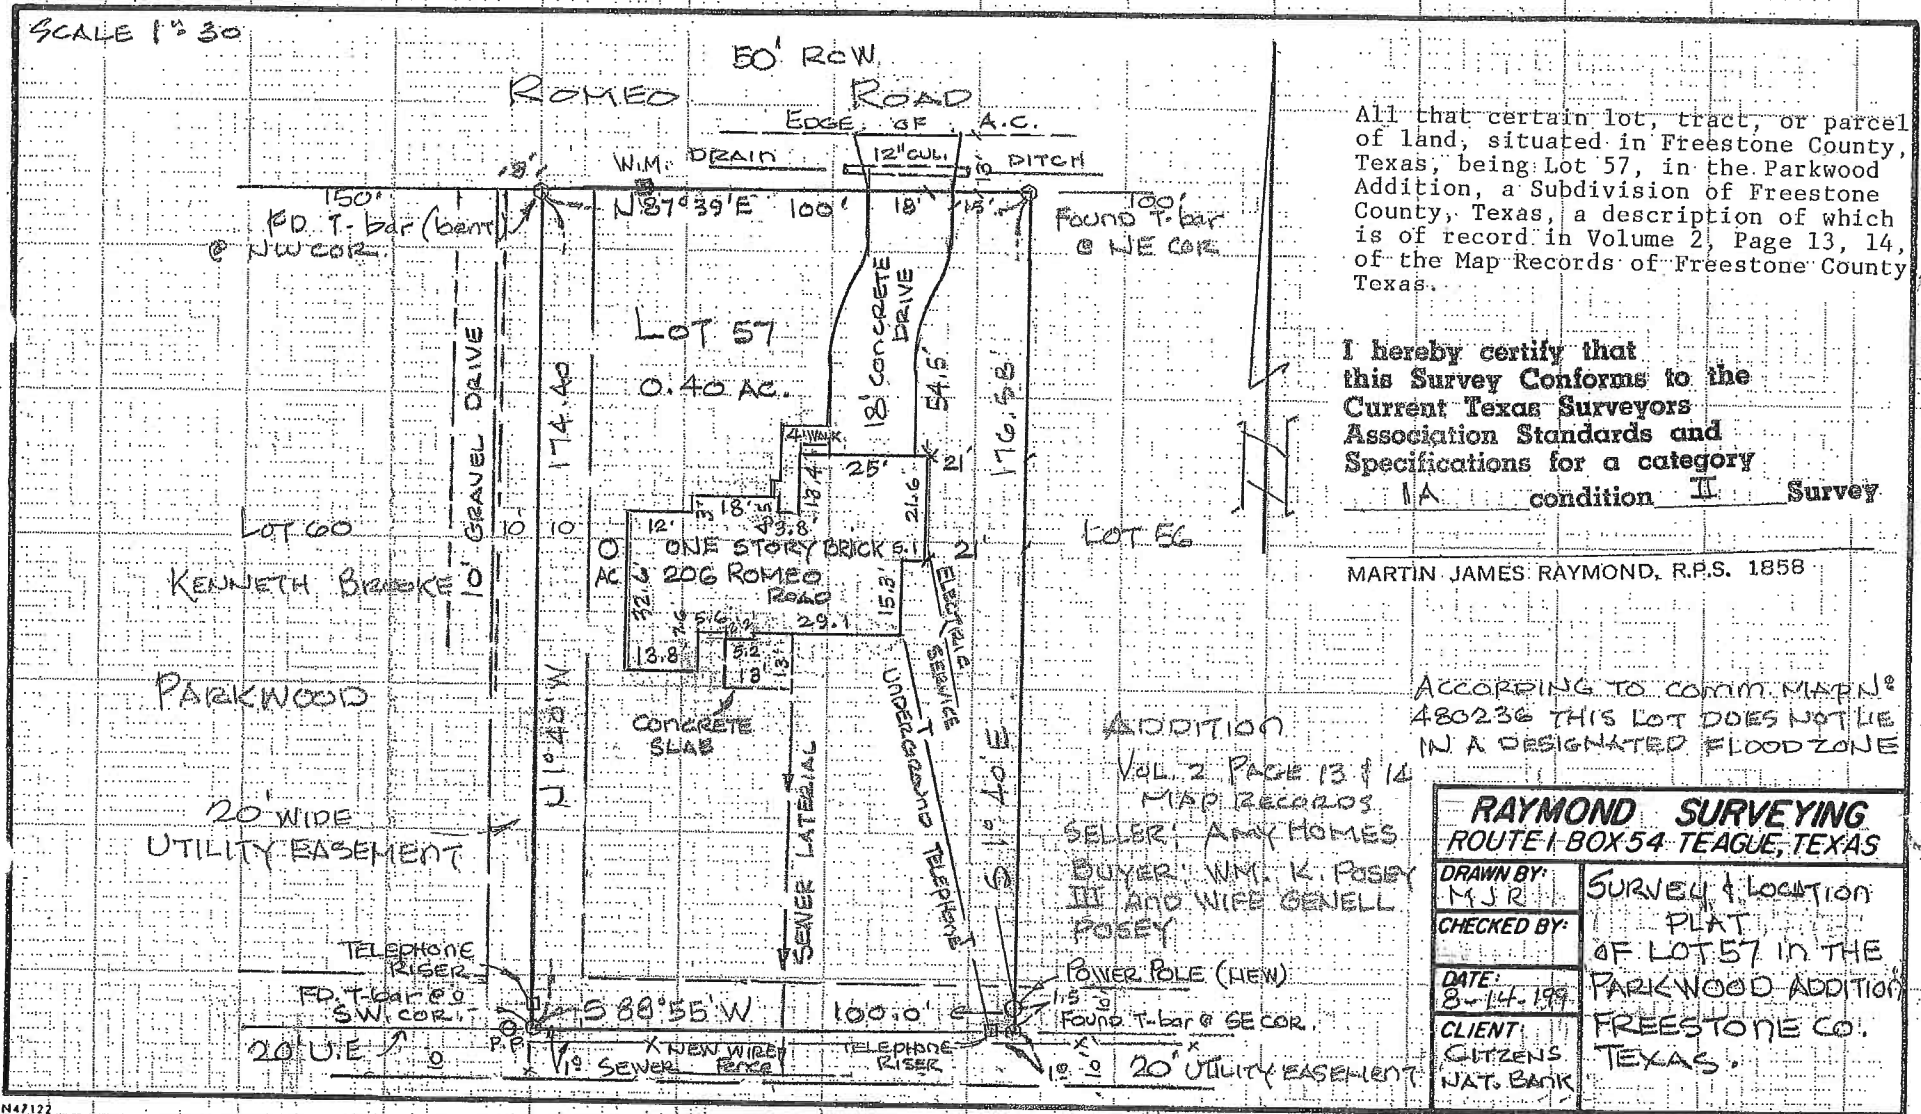 SCALE 1" 30
50' ROW
ROMEO ROAD
EDGE OF A.C.
W.M.
DRAIN
12" CUL.
DITCH
13'
150'
N 87° 39' E
100'
18'
15'
100'
FD. T-bar (bent)
@ NW COR.
Found T-bar
@ NE COR
18' CONCRETE
DRIVE
LOT 57
0.40 AC.
10' GRAVEL DRIVE
174.40
54.5'
176.58'
4' WALK
25'
21'
13.4
21.6
12'
3'
18'
3.8
LOT 60
10
10
AC
ONE STORY BRICK
5.1
21'
LOT 56
KENNETH BROOKE
206 ROMEO
ROAD
32.6
15.3'
ELECTRIC
SERVICE
7.6
5.6
29.1
13.8
5.2
13'
PARKWOOD
CONCRETE
SLAB
UNDERGROUND TELEPHONE
T
T
N 1° 40' W
S 1° 40' E
SEWER LATERIAL
ADDITION
VOL. 2 PAGE 13 & 14
MAP RECORDS
SELLER: AMY HOMES
BUYER: WM. K. POSEY
III AND WIFE GENELL
POSEY
20' WIDE
UTILITY EASEMENT
TELEPHONE
RISER
FD. T-bar @
S.W. COR.
S 88° 55' W
100.0'
POWER POLE (NEW)
1.5
10'
Found T-bar @ SE COR.
20' U.E
10
P.P.
1.0
SEWER
X NEW WIRE
Fence
TELEPHONE
RISER
1.0
10'
20' UTILITY EASEMENT
All that certain lot, tract, or parcel
of land, situated in Freestone County,
Texas, being Lot 57, in the Parkwood
Addition, a Subdivision of Freestone
County, Texas, a description of which
is of record in Volume 2, Page 13, 14,
of the Map Records of Freestone County
Texas.
I hereby certify that
this Survey Conforms to the
Current Texas Surveyors
Association Standards and
Specifications for a category
1A condition II Survey
MARTIN JAMES RAYMOND, R.P.S. 1858
ACCORDING TO COMM. MAP Nº
480236 THIS LOT DOES NOT LIE
IN A DESIGNATED FLOOD ZONE
RAYMOND SURVEYING
ROUTE 1 BOX 54 TEAGUE, TEXAS
DRAWN BY:
MJR
CHECKED BY:
DATE:
CLIENT:
CITZENS
NAT. BANK
SURVEY & LOCATION
PLAT
OF LOT 57 IN THE
PARKWOOD ADDITION
FREESTONE CO.
TEXAS.
N47122